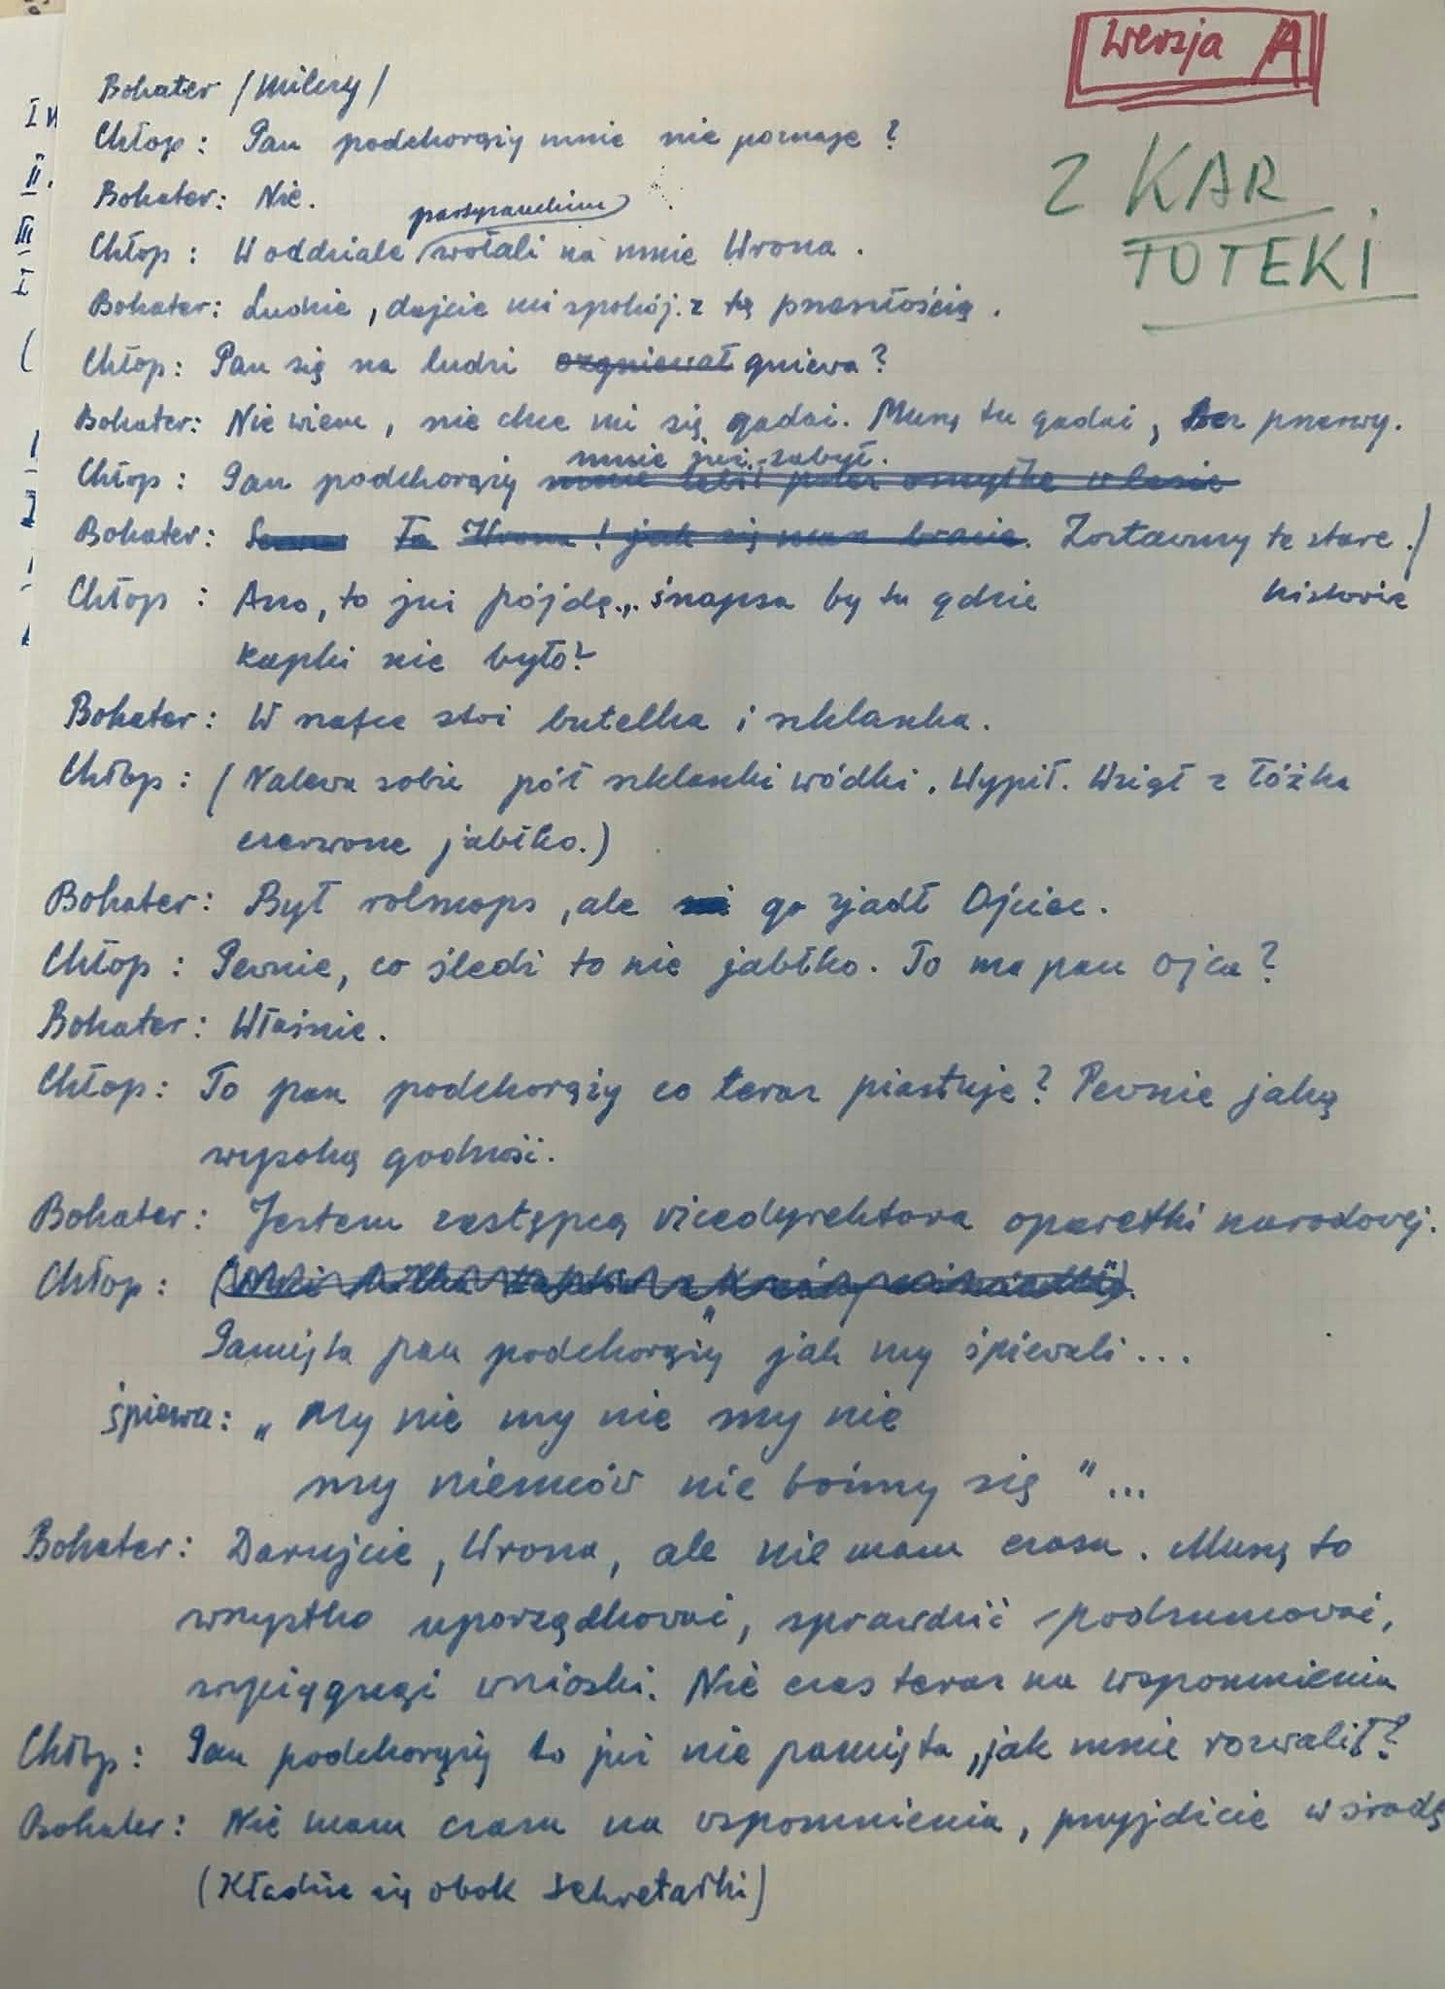 wersja A
Z KAR
TOTEKI
Bohater /milczy/
Chłop: Pan podchorąży mnie nie poznaje?
Bohater: Nie.
partyzanckim
Chłop: W oddziale wołali na mnie Wrona.
Bohater: Ludzie, dajcie mi spokój z tą przeszłością.
Chłop: Pan się na ludzi ozgniewał gniewa?
Bohater: Nie wiem, nie chce mi się gadać. Muszę tu gadać, bez przerwy.
mnie już zabył.
Chłop: Pan podchorąży mnie zabił przez omyłkę w lesie
Bohater: To Wrona! jak się masz bracie. Zostawmy te stare
historie
Chłop: Ano, to już pójdę... śnapsa by tu gdzie
kapki nie było?
Bohater: W szafce stoi butelka i szklanka.
Chłop: (Nalewa sobie pół szklanki wódki. Wypił. Wziął z łóżka
czerwone jabłko.)
Bohater: Był rolmops, ale go zjadł Ojciec.
Chłop: Pewnie, co śledź to nie jabłko. To ma pan ojca?
Bohater: Właśnie.
Chłop: To pan podchorąży co teraz piastuje? Pewnie jaką
wysoką godność.
Bohater: Jestem zastępcą vicedyrektora operetki narodowej.
Chłop:
Pamięta pan podchorąży" jak my śpiewali...
śpiewa: „My nie my nie my nie
my niemców nie boimy się"...
Bohater: Darujcie, Wrona, ale nie mam czasu. Muszę to
wszystko uporządkować, sprawdzić podsumować,
wyciągnąć wnioski. Nie czas teraz na wspomnienia
Chłop: Pan podchorąży to już nie pamięta, jak mnie rozwalił?
Bohater: Nie mam czasu na wspomnienia, przyjdźcie w środę
(Kładzie się obok sekretarki)